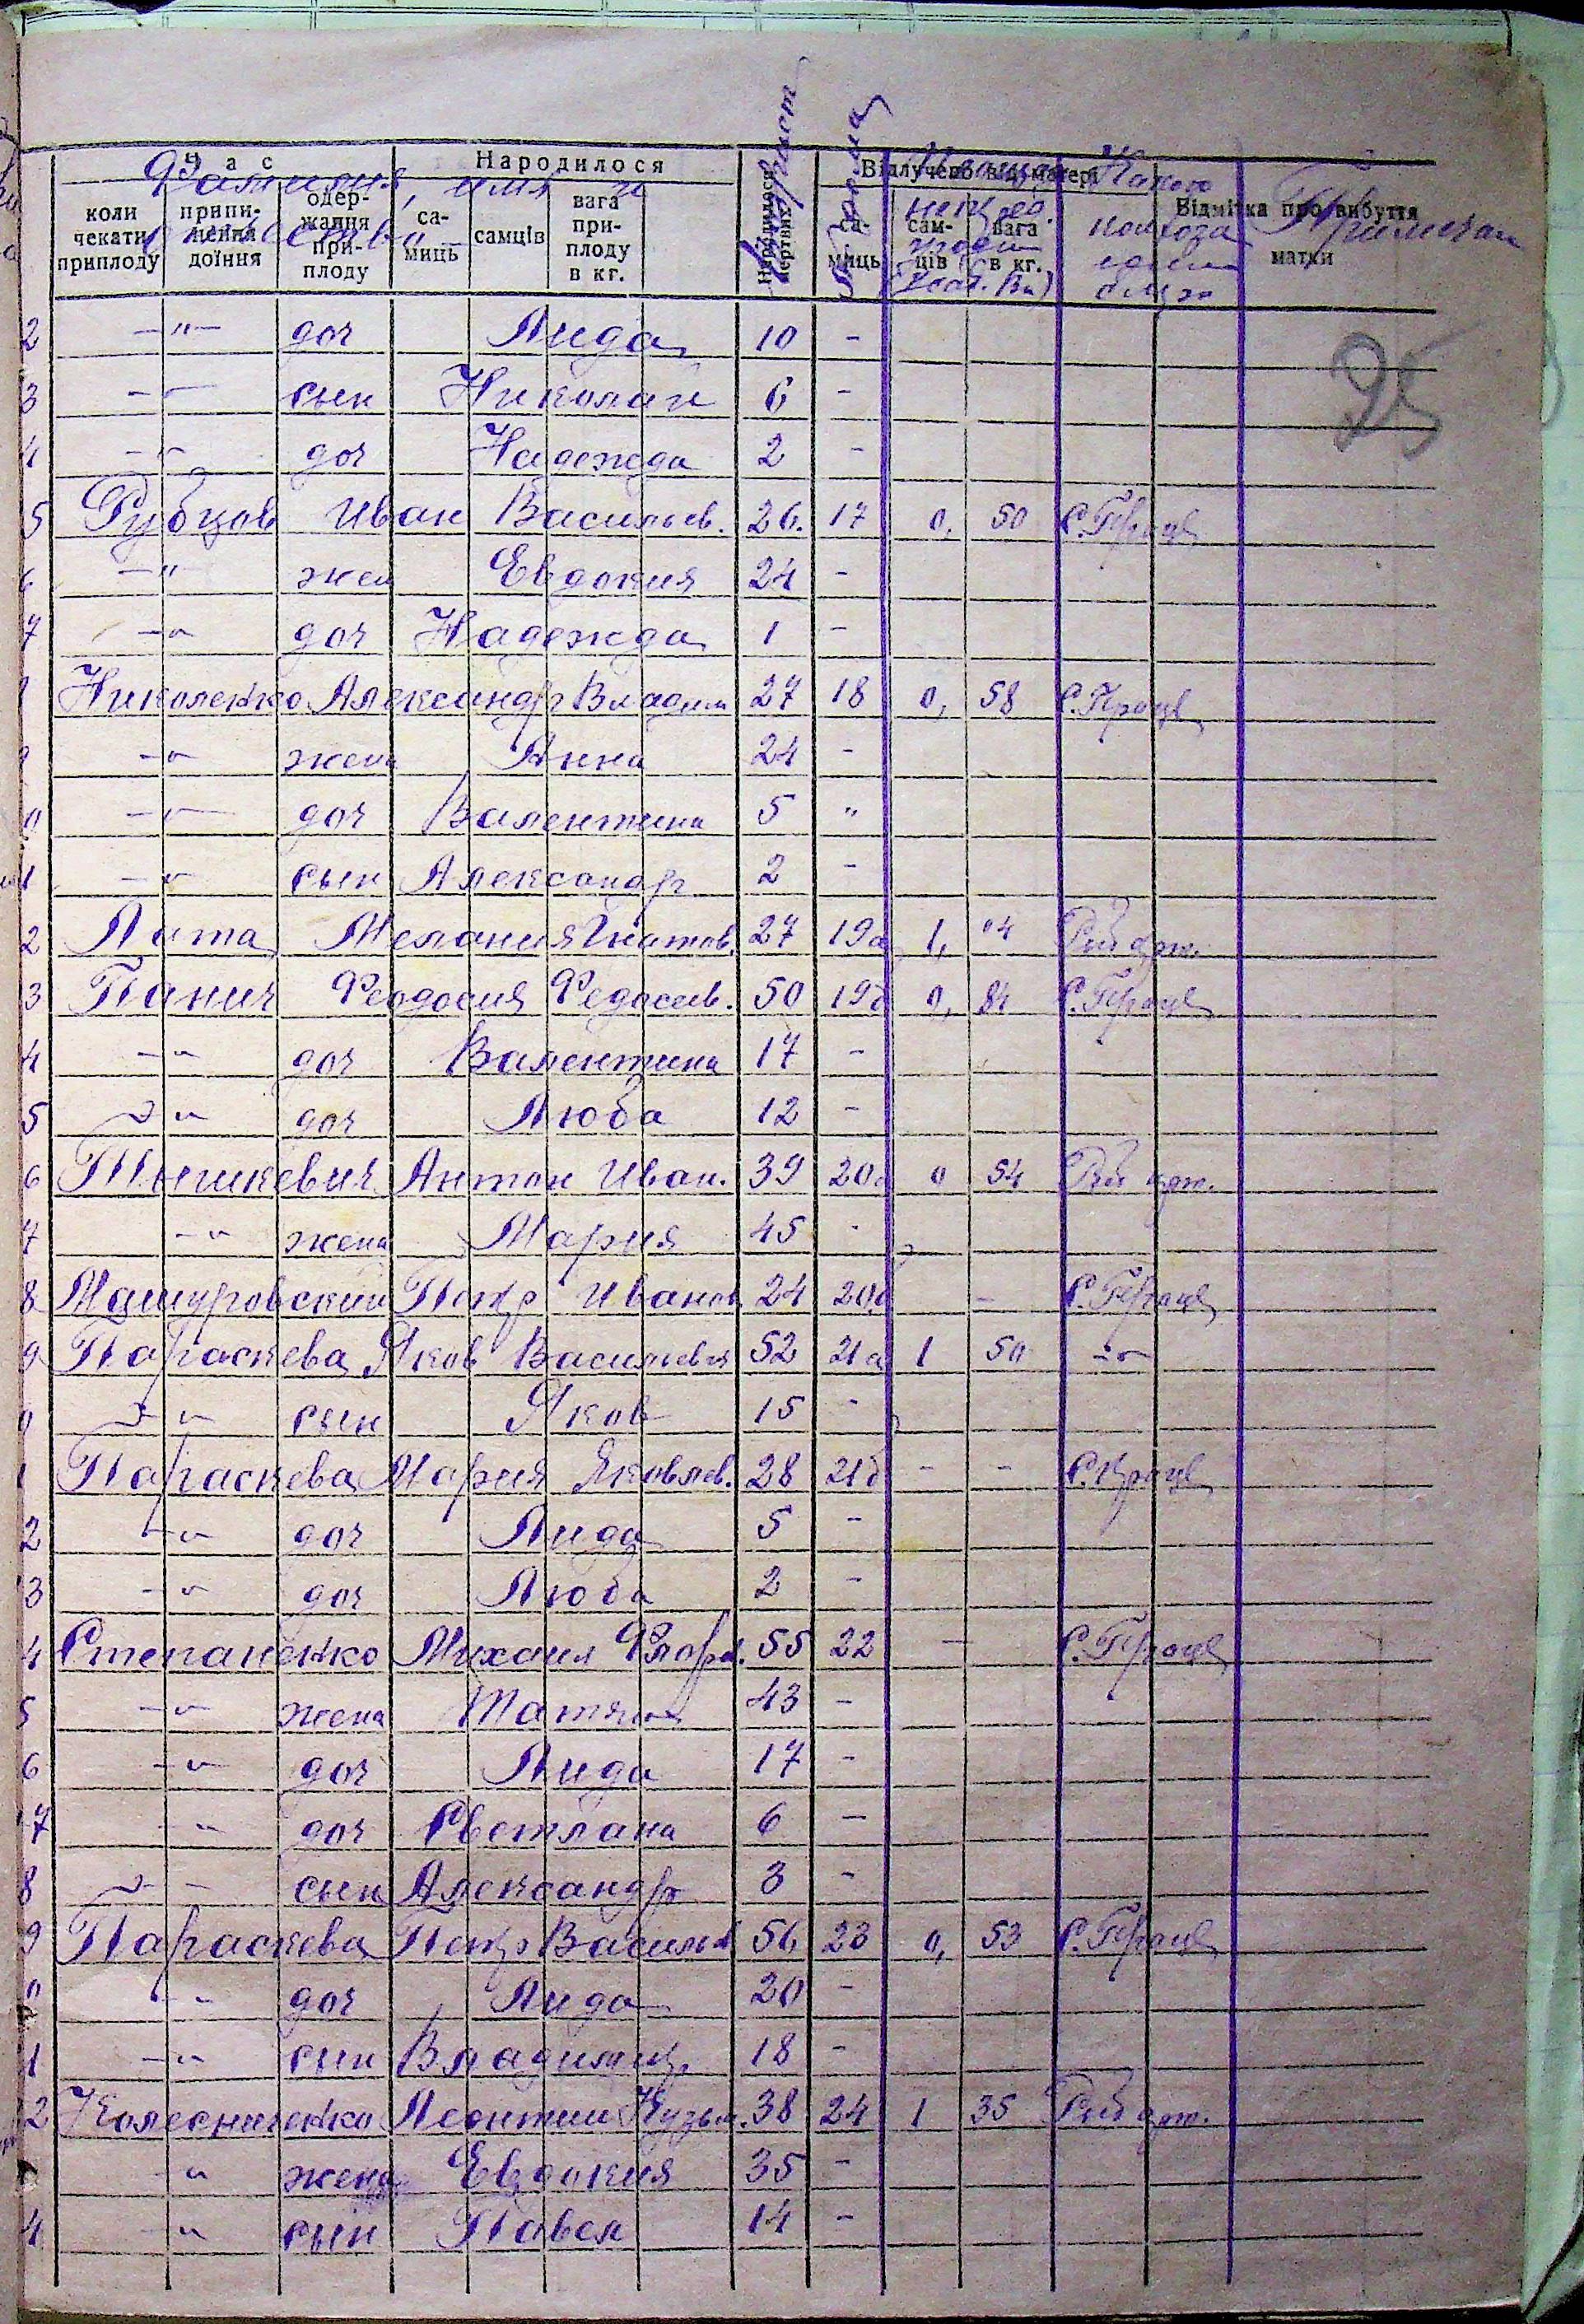 Час Народилося Народилося мертвих Відлучено від матері Відмітка про вибуття матки
коли чекати приплоду припинення доїння одержання приплоду самиць самців вага приплоду в кг. самиць самців вага в кг.
Фамилия, имя и
25
2 -"- доч Лида 10 -
3 -"- сын Николай 6 -
4 -"- доч Надежда 2 -
5 Рубцов Иван Васильев. 26. 17 0, 50
6 -"- жен Евдокия 24 -
7 -"- доч Надежда 1 -
Николенко Александр Владим 27 18 0, 58
-"- жена Анна 24 -
0 -"- доч Валентина 5 "
1 -"- сын Александр 2 -
2 Лита Мелания Игнатов. 27 19а 1, 04
3 Панич Феодосия Федосеев. 50 19б 0, 84
4 -"- доч Валентина 17 -
5 -"- доч Люба 12 -
6 Тышкевич Антон Иван. 39 20а 0 54
7 -"- жена Мария 45 -
8 Машуровский Петр Иванов 24 20б -
9 Параскева Яков Васильевич 52 21а 1 50 -"-
0 -"- сын Яков 15 -
1 Параскева Мария Яковлев. 28 21б - -
2 -"- доч Лида 5 -
3 -"- доч Люба 2 -
4 Степаненко Михаил 55 22 -
5 -"- жена Татяна 43 -
6 -"- доч Лида 17 -
7 -"- доч Светлана 6 -
8 -"- сын Александр 3 -
9 Параскева Петр Васильев 56 23 0, 53
0 -"- доч Лида 20 -
1 -"- сын Владимир 18 -
2 Колесниченко Леонтий Кузьм. 38 24 1 35
" жена Евдокия 35 -
4 " сын Павел 14 -